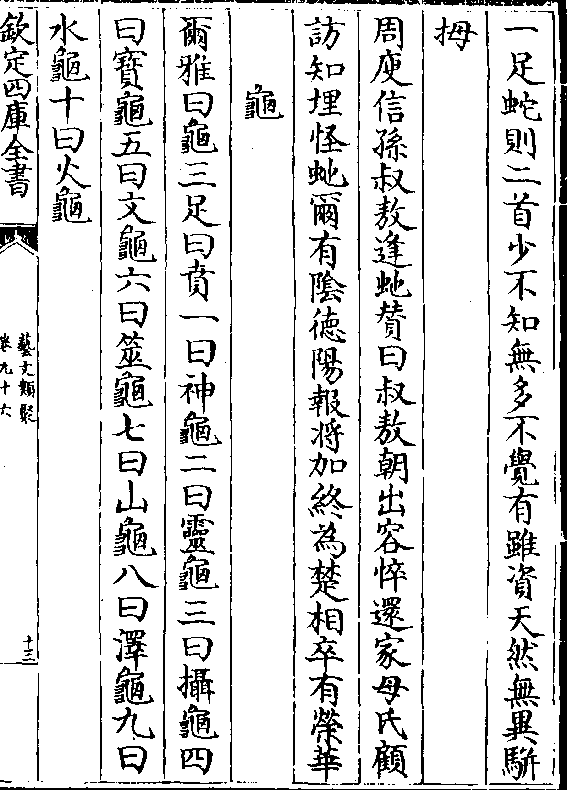 一足蛇則二首少不知無多不覺有雖資天然無異駢
拇
周庾信孫叔敖逢虵賛曰叔敖朝出容悴還家母氏顧
訪知埋怪虵爾有陰德陽報將加終為楚相卒有榮華
龜
爾雅曰龜三足曰賁一曰神龜二曰靈龜三曰攝龜四
曰寶龜五曰文龜六曰筮龜七曰山龜八曰澤龜九曰
水龜十曰火龜
欽定四庫全書
藝文類聚
卷九十六
十三